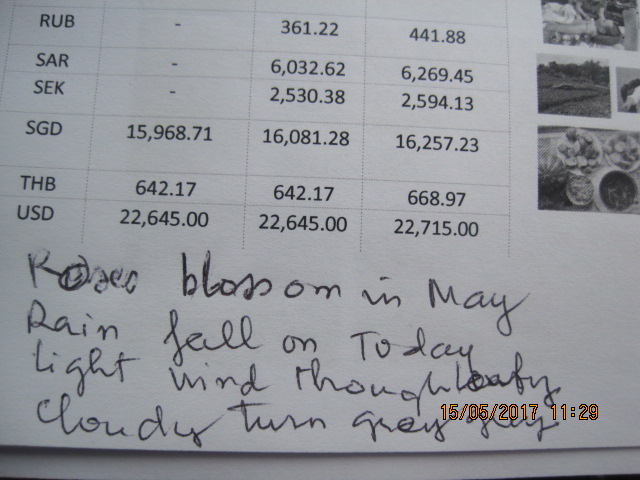 RUB - 361.22 441.88
SAR - 6,032.62 6,269.45
SEK - 2,530.38 2,594.13
SGD 15,968.71 16,081.28 16,257.23
THB 642.17 642.17 668.97
USD 22,645.00 22,645.00 22,715.00
blossom in May
Rain fall on Today
Light wind though
Cloudy turn gray
15/05/2017 11:29